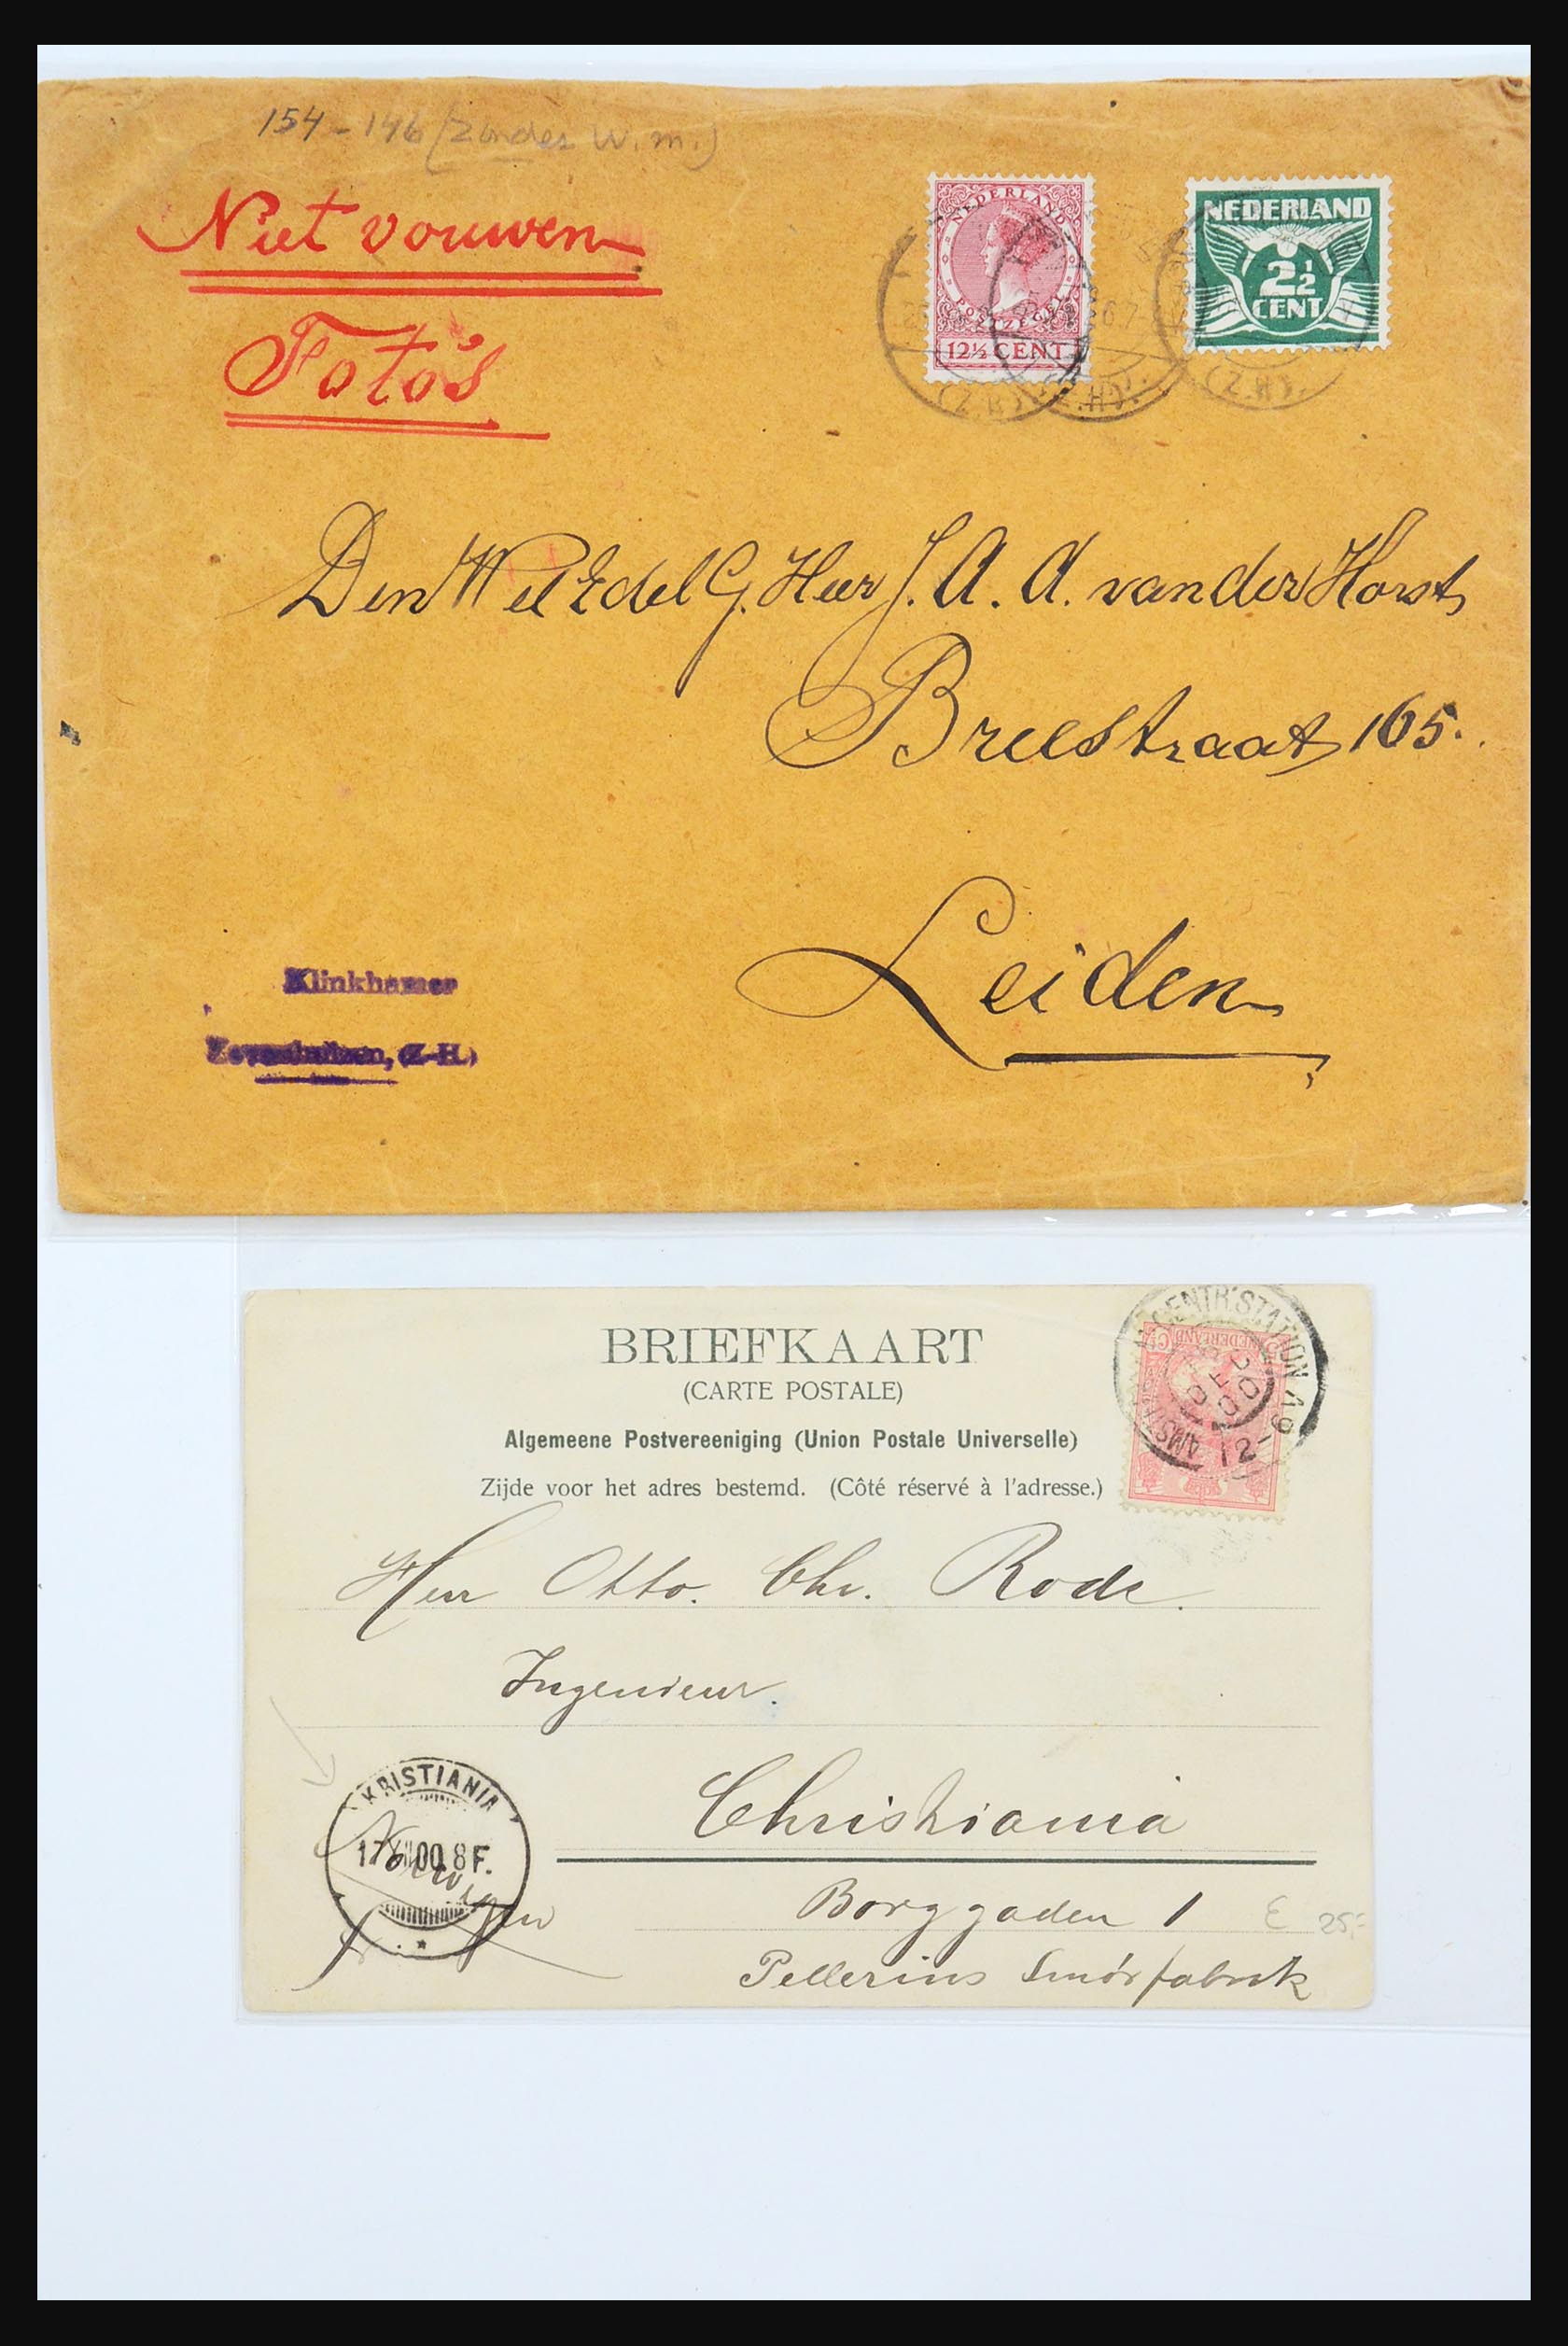 154 - 146 (zonder W.m.)
Niet vouwen
Foto's
NEDERLAND
POSTZEGEL
12½ CENT
NEDERLAND
2½
CENT
(Z.H).
(Z.H).
(Z.H).
Den Wel Edel G. Heer J. A. A. van der Horst
Breestraat 165.
Leiden
Klinkhamer
Zevenhuizen, (Z-H.)
BRIEFKAART
(CARTE POSTALE)
Algemeene Postvereeniging (Union Postale Universelle)
Zijde voor het adres bestemd. (Côté réservé à l'adresse.)
CENTR. STATION 19
DEC
00
12-
NEDERLAND
Herr Otto. Chr. Rode.
Ingenieur.
Christiania
KRISTIANIA
17 XII 00 8 F.
Norwegen
Borggaden 1
E 25,-
Pellerins Smörfabrik